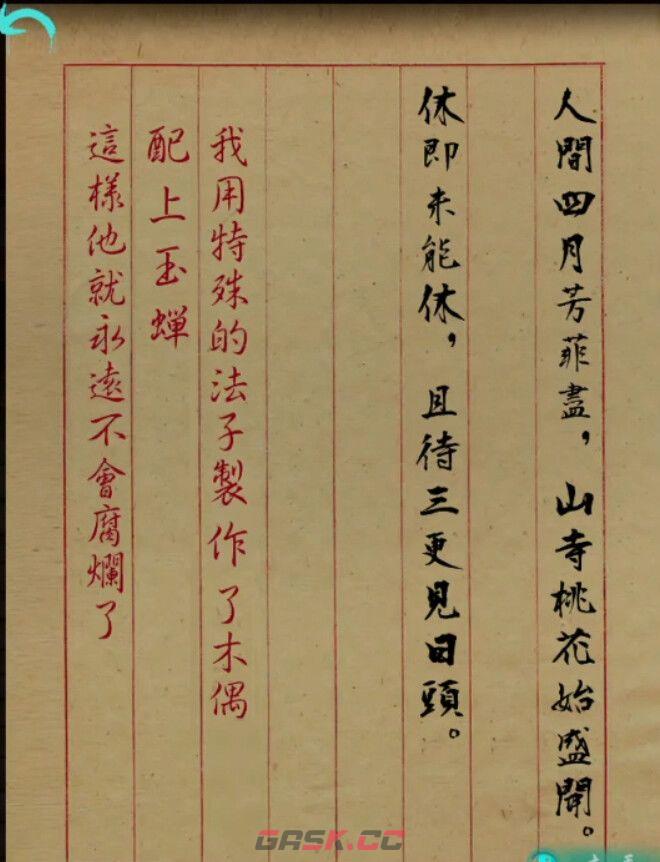 人間四月芳菲盡，山寺桃花始盛開。
休即未能休，且待三更見日頭。
我用特殊的法子製作了木偶
配上玉蟬
這樣他就永遠不會腐爛了
GASK.CC